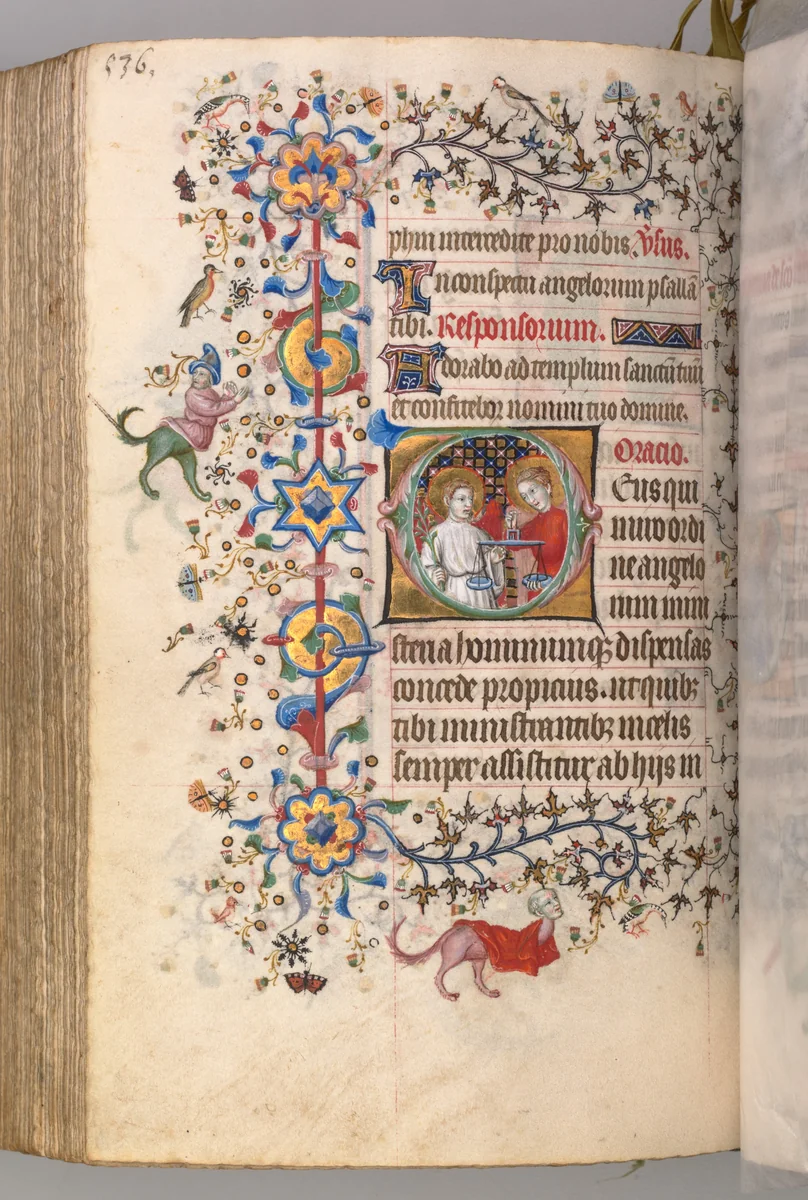 536.
phin intercedite pro nobis. V̄sus.
In conspectu angelorum psallā
tibi. Responsorium.
Adorabo ad templum sanctū tuū
et confitebor nomini tuo domine.
Oracio.
Deus qui
miro ordi
ne angelo
rum mini
steria hominumqꝫ dispensas
concede propicius. ut quibꝫ
tibi ministrantibꝫ in celis
semper assistitur ab hijs in